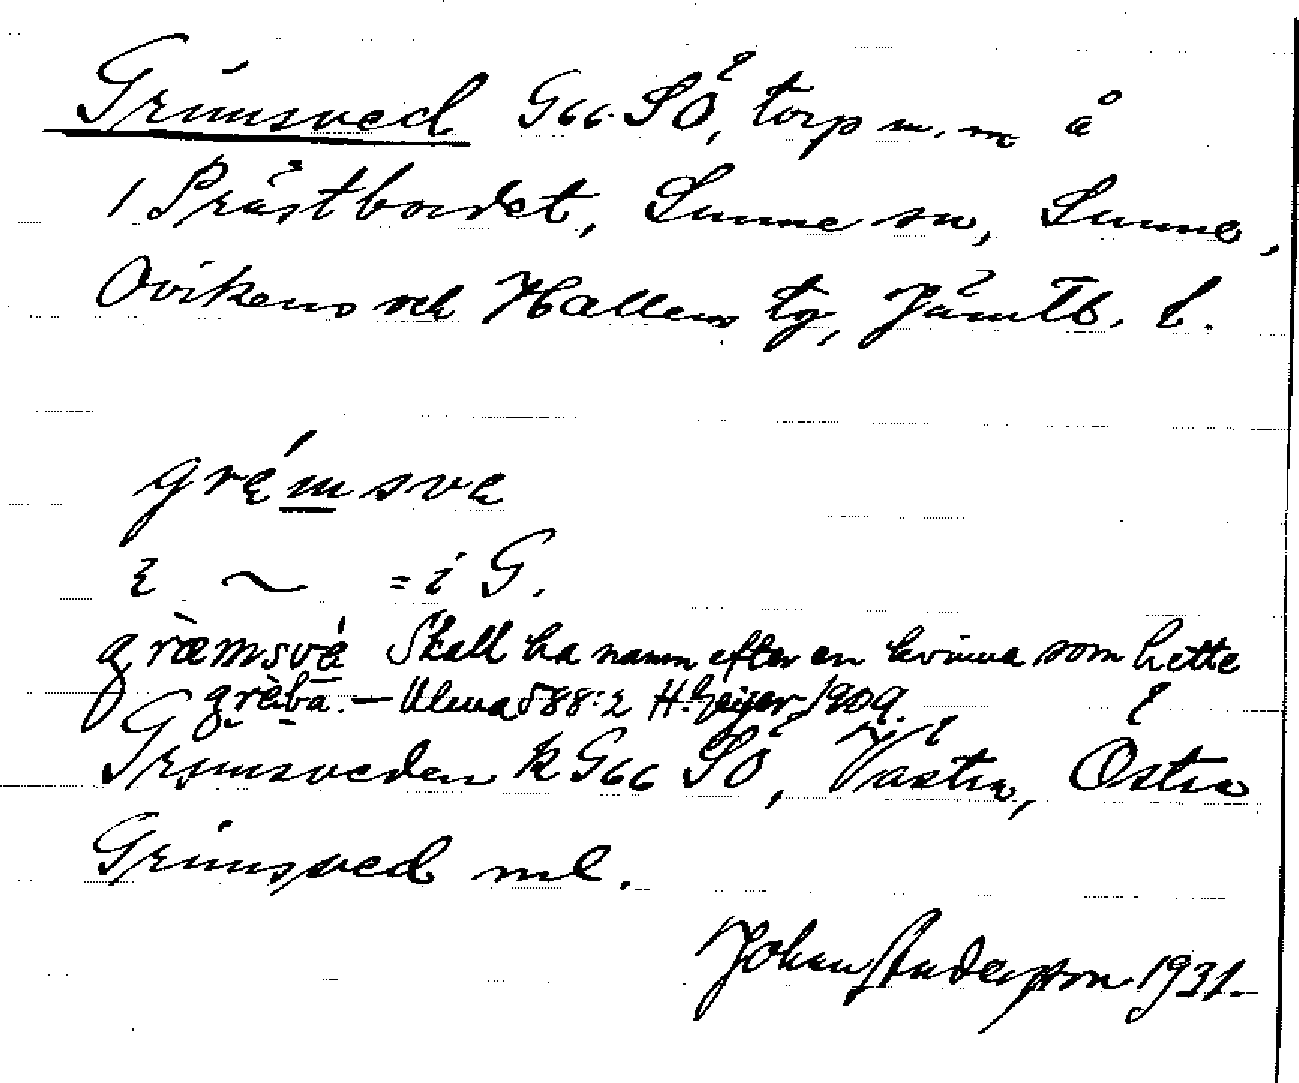 Grimsved G66 SÖ, torp m. m å
1 Prästbordet, Sunne sn, Sunne,
Ovikens och Hallens tg, Jämtl. l.
grémsve
i ~ = i G.
græmsve Skall ha namn efter en kvinna som hette
greba. — Ulma 588:2 H. Geijer 1909.
Grimsveden k G66 SÖ, Västra, Östra
Grimsved ml.
Johan Anderson 1931.